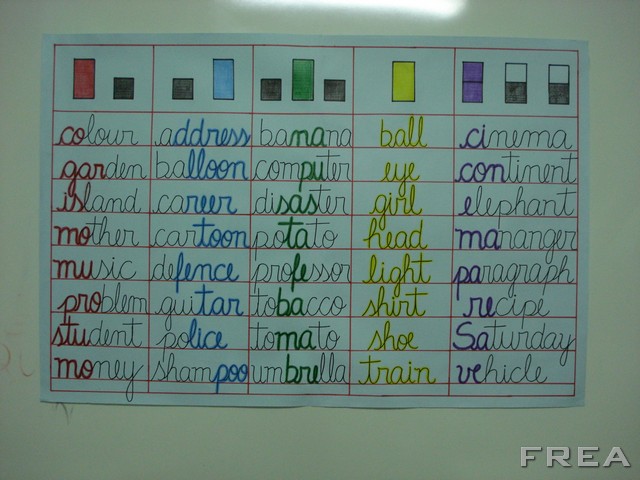 colour address banana ball cinema
garden balloon computer eye continent
island career disaster girl elephant
mother cartoon potato head mananger
music defence professor light paragraph
problem guitar tobacco shirt recipe
student police tomato shoe Saturday
money shampoo umbrella train vehicle
FREA